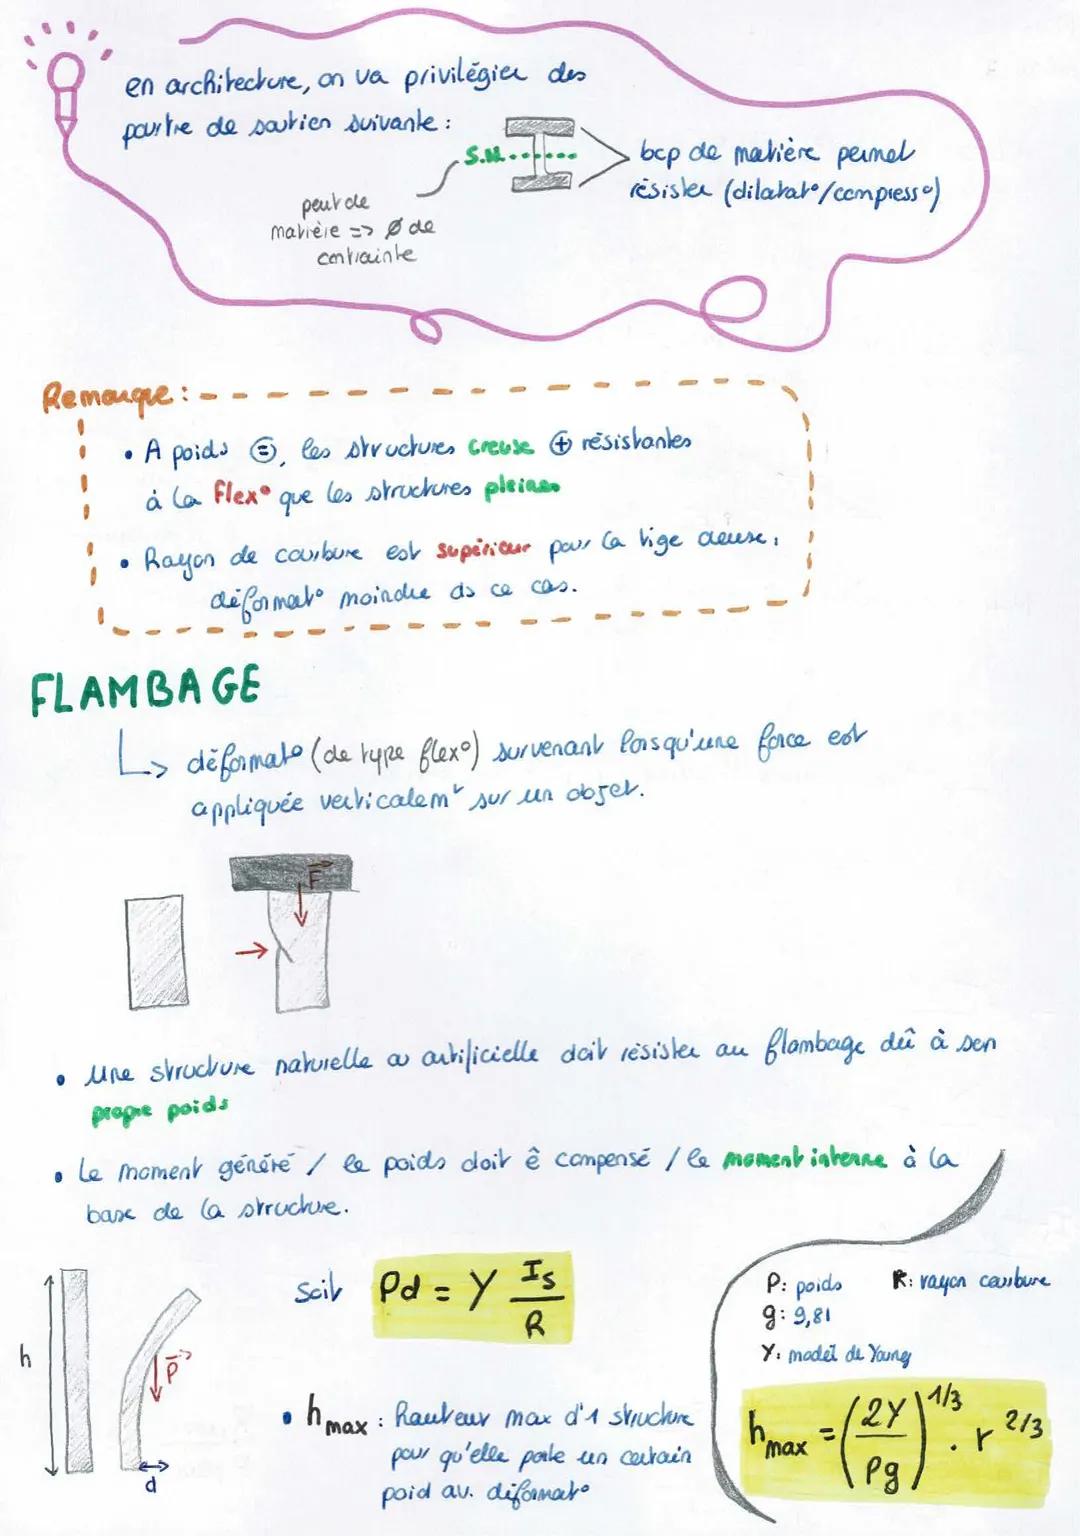 en architecture, on va privilégier des
poutre de soutien suivante :
S.N.
bcp de matière permet
résister (dilatat°/compress°)
peut de
matière => Ø de
contrainte
Remarque :
• A poids =, les structures creuse + résistantes
à la flex° que les structures pleines
• Rayon de courbure est supérieur pour la tige creuse,
déformat° moindre ds ce cas.
FLAMBAGE
↳ déformat° (de type flex°) survenant lorsqu'une force est
appliquée verticalemt sur un objet.
F
• Une structure naturelle ou artificielle doit résister au flambage dû à son
propre poids
• Le moment généré / le poids doit ê compensé / le moment interne à la
base de la structure.
h
P
d
soit Pd = Y Is/R
• hmax : hauteur max d'1 structure
pour qu'elle porte un certain
poid av. déformat°
P: poids R: rayon courbure
g: 9,81
Y: model de Young
hmax = (2Y/Pg)^1/3 . r^2/3